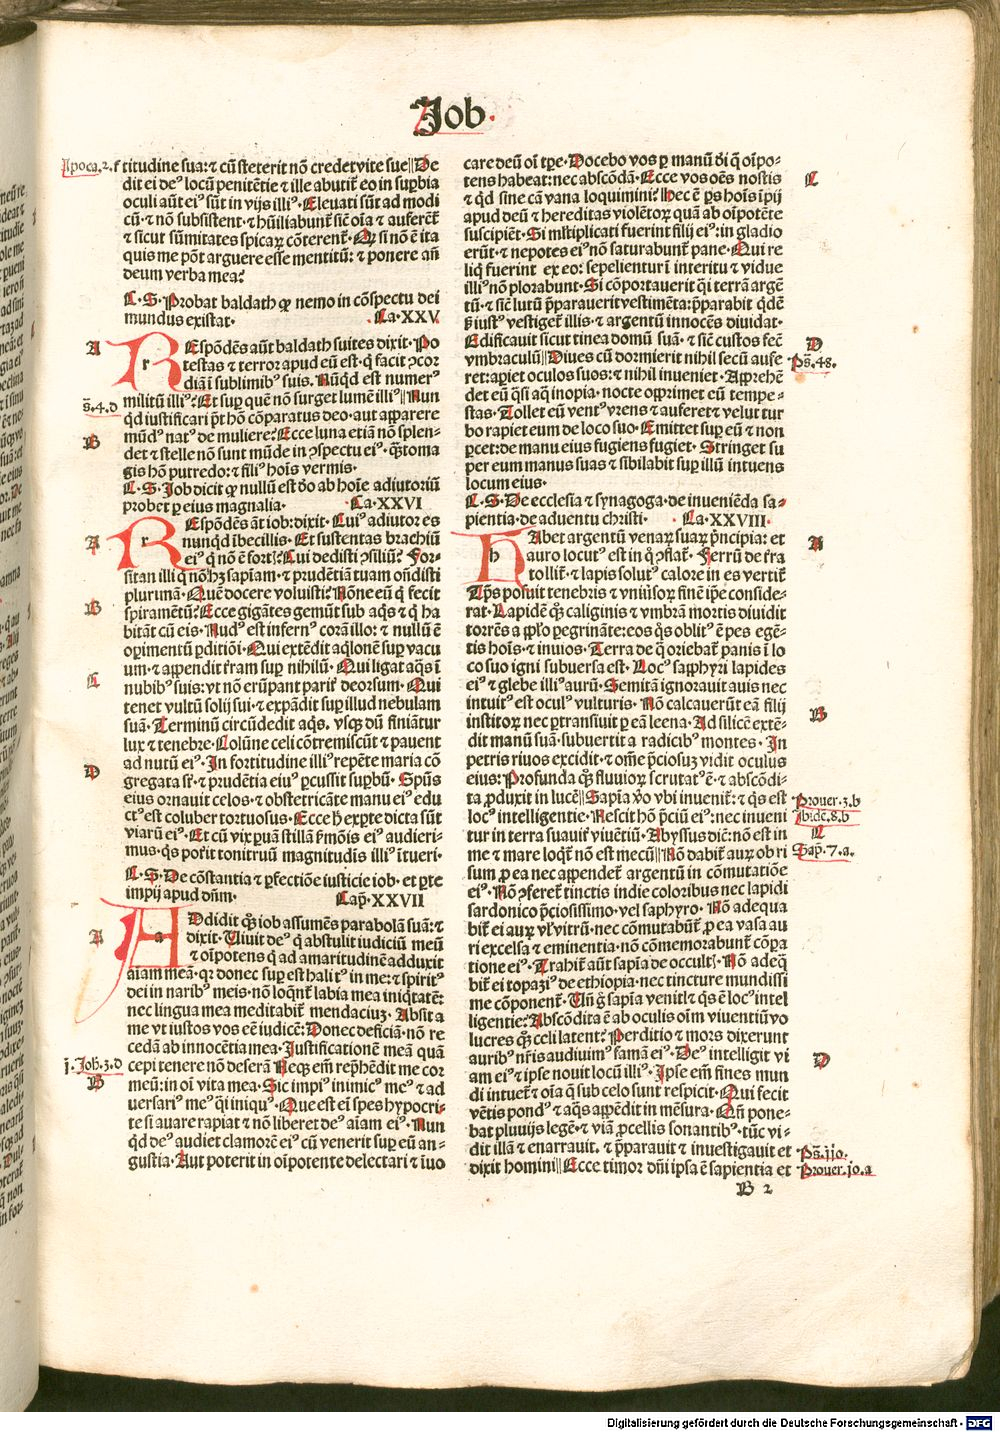 Job.
Apoca.2.f
titudine sua: ⁊ cū steterit nō credet vite sue||De
dit ei deꝰ locū penitētie ⁊ ille abutit̄ eo in suꝑbia
oculi aūt eiꝰ sūt in vijs illiꝰ. Eleuati sūt ad modi
cū ⁊ nō subsistent ⁊ hūiliabunt̄ sic̄ oīa ⁊ auferēt̄
⁊ sicut sūmitates spicaꝝ cōterent̄. Qꝛ si nō ē ita
quis me pōt arguere esse mentitū: ⁊ ponere añ
deum verba mea?
C. S. Probat baldath qꝙ nemo in cōspectu dei
mundus existat. Ca.XXV
A
REspōdēs aūt baldath suites dixit. Po
testas ⁊ terror apud eū est. q̄ facit ꝯcor
diā ī sublimibꝰ suis. Nūqd est numerꝰ
militū illiꝰ? Et suꝑ quē nō surget lumē illiꝰ||Nun
s̄.4.d
qd iustificari pt̄ hō cōparatus deo. aut apparere
B
mūdꝰ natꝰ de muliere? Ecce luna etiā nō splen-
det ⁊ stelle nō sunt mūde in ꝯspectu eiꝰ. q̄toma
gis hō putredo: ⁊ filiꝰ hoīs vermis.
C. S. Job dicit qꝙ nullū est dō ab hoīe adiutoriū
probet ꝑ eius magnalia. Ca.XXVI
A
REspōdēs āt iob: dixit. Cuiꝰ adiutor es
nunqd ībecillis. Et sustentas brachiū
eiꝰ q̄ nō ē fort̄? Cui dedisti ꝯsiliū? For-
sitan illi q̄ nō hꝫ sapīam. ⁊ prudētiā tuam oñdisti
plurimā. Quē docere voluisti? Nōne eū q̄ fecit
B
spiramētū? Ecce gigātes gemūt sub aq̄s ⁊ q̄ ha
bitāt cū eis. Nudꝰ est infernꝰ corā illo: ⁊ nullū ē
oꝑimentū ꝑditiōi. Qui extēdit aq̄lonē suꝑ vacu
um. ⁊ appendit t̄ram suꝑ nihilū. Qui ligat aq̄s ī
C
nubibꝰ suis: vt nō erūpant parit̄ deorsum. Qui
tenet vultū solij sui. ⁊ expādit suꝑ illud nebulam
suā. Terminū circūdedit aq̄s. vsqꝫ dū finiātur
lux ⁊ tenebre. Colūne celi cōtremiscūt ⁊ pauent
ad nutū eiꝰ. In fortitudine illiꝰ repēte maria cō
D
gregata st̄. ⁊ prudētia eiuꝰ ꝑcussit suꝑbū. Spūs
eius ornauit celos. ⁊ obstetricāte manu eiꝰ edu
ctꝰ est coluber tortuosus. Ecce h̄ ex ꝑte dicta sūt
viarū eiꝰ. Et cū vix ꝑuā stillā ẜmōis eiꝰ audieri-
mus. q̄s poṫit tonitruū magnitudis illiꝰ ītueri.
C. S. De cōstantia ⁊ ꝑfectiōe iusticie iob. et ꝑte
impij apud dn̄m. Cap̄.XXVII
A
ADdidit qꝫ iob assumēs parabolā suā: ⁊
dixit. Viuit deꝰ q̄ abstulit iudiciū meū
⁊ oīpotens q̄ ad amaritudinē adduxit
aīam meā. qꝛ donec suꝑest halitꝰ in me: ⁊ spiritꝰ
dei in naribꝰ meis. nō loqn̄t̄ labia mea iniq̄tatē:
nec lingua mea meditabit̄ mendaciuꝫ. Absit a
me vt iustos vos eē iudicē: Donec deficiā. nō re
cedā ab innocētia mea. Justificationē meā quā
j.Joh.3.d
cepi tenere nō deserā Necqꝫ em̄ rep̄hēdit me cor
B
meū: in oī vita mea. Sic impiꝰ inimicꝰ meꝰ ⁊ ad
uersariꝰ meꝰ q̄i iniquꝰ. Que est eī spes hypocri-
te si auare rapiat ⁊ nō liberet deꝰ aīam eiꝰ. Nun
qd deꝰ audiet clamorē eiꝰ cū venerit suꝑ eū an-
gustia. Aut poterit in oīpotente delectari ⁊ īuo
care deū oī tꝑe. Docebo vos ꝑ manū dī q̄ oīpo-
C
tens habeat: nec abscōdā. Ecce vos oēs nostis
⁊ qd sine cā vana loquimini? Hec ē ꝑs hoīs īpij
apud deū ⁊ hereditas violētoꝝ quā ab oīpotēte
suscipiēt. Si mltiplicati fuerint filij eiꝰ: in gladio
erūt. ⁊ nepotes eiꝰ nō saturabunt̄ pane. Qui re
liq̄ fuerint ex eo: sepelientur ī interitu ⁊ vidue
illiꝰ nō plorabunt. Si cōportauerit q̄i terrā argē
tū. ⁊ sic̄ lutū p̄parauerit vestimēta: p̄parabit qdē
ẜ iustꝰ vestiget̄ illis. ⁊ argentū innocēs diuidat.
Edificauit sicut tinea domū suā. ⁊ sic̄ custos fec̄
D
vmbraculū||Diues cū dormierit nihil secū aufe
Ps̄.48.
ret: aꝑiet oculos suos: ⁊ nihil inueniet. Apprehē
det eū q̄si aq̄ inopia. nocte opprimet eū tempe-
stas. Tollet eū ventꝰ vrens ⁊ auferet ⁊ velut tur
bo rapiet eum de loco suo. Emittet suꝑ eū ⁊ non
ꝑcet: de manu eius fugiens fugiet. Stringet su
per eum manus suas ⁊ sibilabit suꝑ illū intuens
locum eius.
C. S. De ecclesia ⁊ synagoga. de inueniēda sa-
pientia. de aduentu christi. Ca.XXVIII.
A
HAbet argentū venaꝝ suaꝝ p̄ncipia: et
auro locutꝰ est in q̄ ꝯflat̄. Ferrū de t̄ra
tollit̄. ⁊ lapis solutꝰ calore in es vertit̄
Tp̄s posuit tenebris ⁊ vniūsoꝝ finē ip̄e conside-
rat. Lapidē qꝫ caliginis ⁊ vmbrā mortis diuidit
torrēs a ppl̄o ꝑegrināte: eos q̄s oblitꝰ ē pes egē-
tis hoīs. ⁊ inuios. Terra de q̄ oriebat̄ panis ī lo
co suo igni subuersa est. Locꝰ sapphyri lapides
eiꝰ ⁊ glebe illiꝰ aurū. Semitā ignorauit auis nec
intuitꝰ est oculꝰ vulturis. Nō calcauerūt eā filij
B
institoꝝ nec ꝑtransiuit ꝑ eā leena. Ad silicē extē-
dit manū suā. subuertit a radicibꝰ montes. In
petris riuos excidit. ⁊ om̄e p̄ciosuꝫ vidit oculus
eius: Profunda qꝫ fluuioꝝ scrutatꝰ ē. ⁊ abscōdi-
Prouer.3.b
ta ꝓduxit in lucē||Sapīa v̄o vbi inuenit̄: ⁊ q̄s est
Jbidē.8.b
locꝰ intelligentie. Nescit hō p̄ciū eiꝰ: nec inueni
C
tur in terra suauit̄ viuētiū. Abyssus dic̄: nō est in
Sap̄.7.a.
me ⁊ mare loqt̄ nō est mecū||Nō dabit̄ auꝝ obri
sum ꝓ ea nec appendet̄ argentū in cōmutatiōe
eiꝰ. Nō ꝯferet̄ tinctis indie coloribus nec lapidi
sardonico p̄ciosissimo. vel saphyro. Nō adequa
bit̄ ei auꝝ vl̄ vitrū. nec cōmutabūt̄ ꝓ ea vasa au
ri excelsa ⁊ eminentia. nō cōmemorabunt̄ cōꝑa
tione eiꝰ. Trahit̄ aūt sapīa de occultꝭ. Nō adeq̄
bit̄ ei topaziꝰ de ethiopia. nec tincture mundissi
me cōponent̄. Vn̄ ḡ sapīa venit ⁊ q̄s ē locꝰ intel
ligentie? Abscōdita ē ab oculis oīm viuentiū vo
lucres qꝫ celi latent? Perditio ⁊ mors dixerunt
D
auribꝰ nr̄is audiuimꝰ famā eiꝰ. Deꝰ intelligit vi
am eiꝰ ⁊ ipse nouit locū illiꝰ. Ipse em̄ fines mun
di intuet̄ ⁊ oīa q̄ sub celo sunt respicit. Qui fecit
vētis pondꝰ ⁊ aq̄s appēdit in mēsura. Qn̄ pone-
bat pluuijs legē. ⁊ viā ꝓcellis sonantibꝰ. tūc vi-
dit illā ⁊ enarrauit. ⁊ p̄parauit ⁊ inuestigauit et
Ps̄.110.
dixit homini||Ecce timor dn̄i ipsa ē sapientia et
Prouer.10.a
B 2
Digitalisierung gefördert durch die Deutsche Forschungsgemeinschaft - DFG